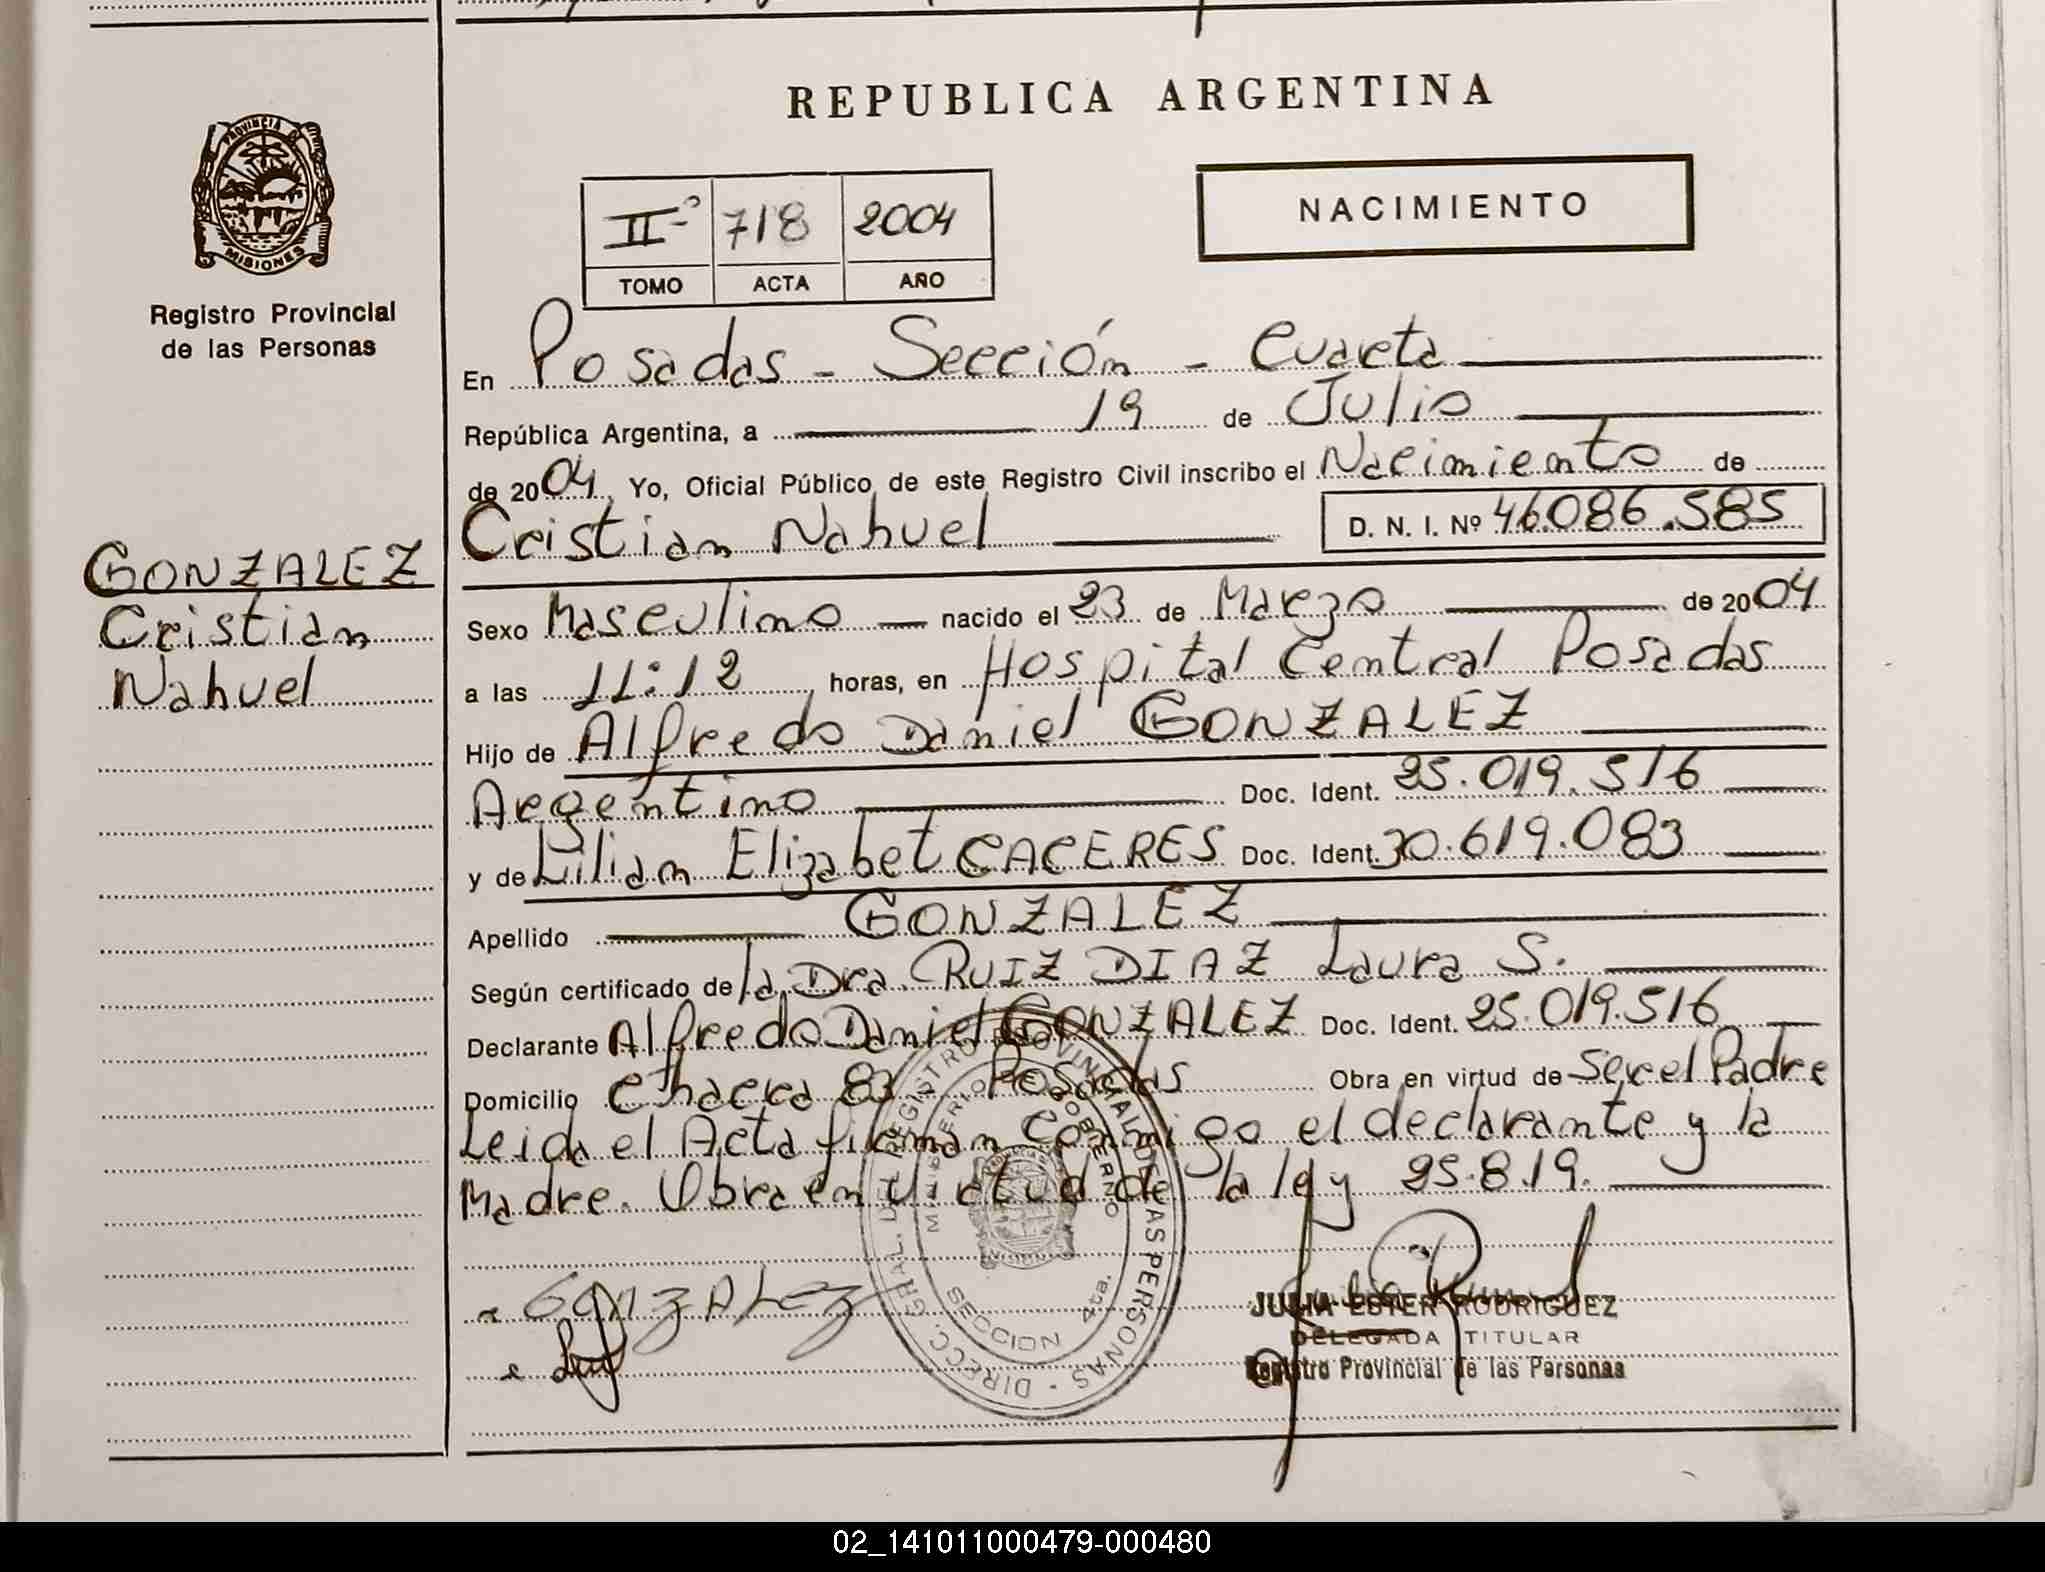 REPUBLICA ARGENTINA
PROVINCIA DE
MISIONES
Registro Provincial
de las Personas
II-º 718 2004
TOMO ACTA AÑO
NACIMIENTO
En Posadas - Sección - Cuarta
República Argentina, a 19 de Julio
de 2004, Yo, Oficial Público de este Registro Civil inscribo el Nacimiento de
Cristian Nahuel D. N. I. Nº 46.086.585
GONZALEZ
Cristian
Nahuel
Sexo Masculino nacido el 23 de Marzo de 2004
a las 11:12 horas, en Hospital Central Posadas
Hijo de Alfredo Daniel GONZALEZ
Argentino Doc. Ident. 25.019.516
y de Lilian Elizabet CACERES Doc. Ident. 30.619.083
Apellido GONZALEZ
Según certificado de la Dra. RUIZ DIAZ Laura S.
Declarante Alfredo Daniel GONZALEZ Doc. Ident. 25.019.516
Domicilio Chacra 83 Posadas Obra en virtud de Ser el Padre
Leida el Acta firman conmigo el declarante y la
Madre. Obra en virtud de la ley 25.819.
GONZALEZ
DIRECC. GRAL. DEL REGISTRO PROVINCIAL DE LAS PERSONAS
MINISTERIO GOBIERNO
SECCION 4ta.
JULIA ESTER RODRIGUEZ
DELEGADA TITULAR
Registro Provincial de las Personas
02_141011000479-000480